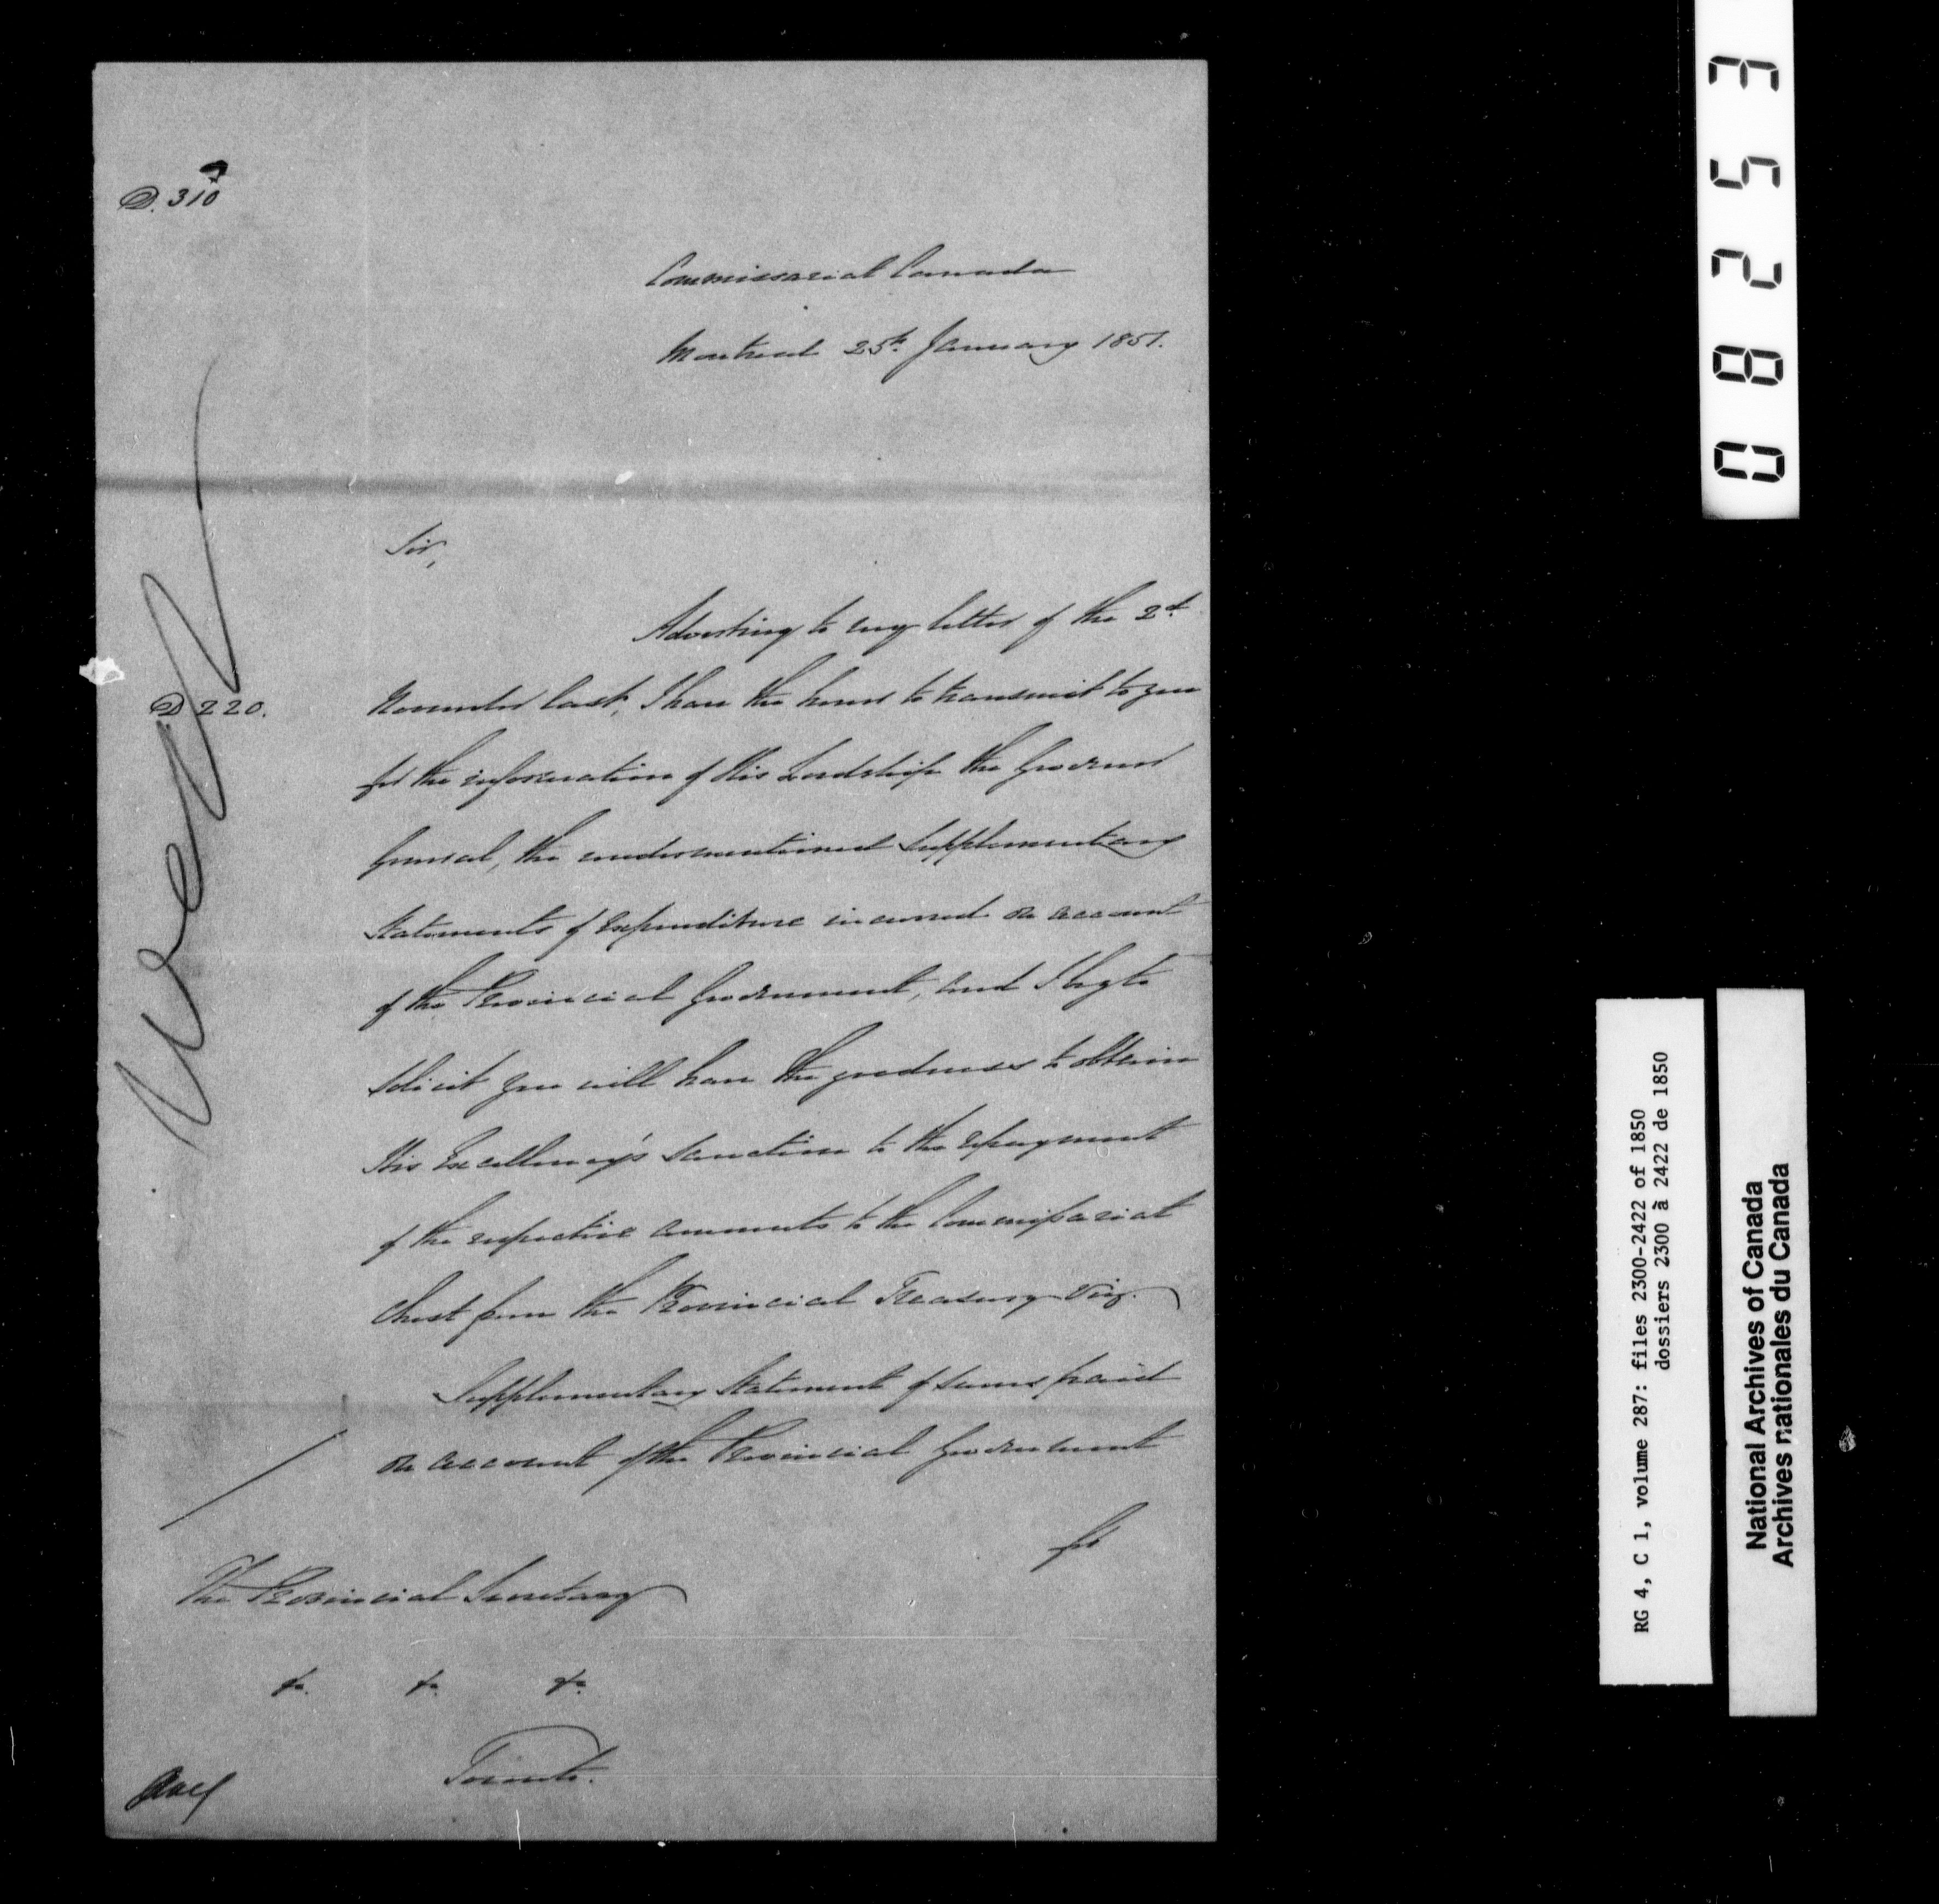 D. 310
Commissariat Canada
Montreal 25th January 1851.
Sir,
Adverting to my letter of the 2d
D 220.
November last, I have the honor to transmit to you
for the information of His Lordship the Governor
General, the undermentioned Supplementary
Statements of Expenditure incurred on account
of the Provincial Government, and I beg to
solicit you will have the goodness to obtain
His Excellency's sanction to the repayment
of the respective amounts to the Commissariat
Chest from the Provincial Treasury Viz.
Supplementary Statement of sums paid
on account of the Provincial Government
for
The Provincial Secretary
&c. &c. &c.
Toronto.
West
08253
RG 4, C 1, volume 287: files 2300-2422 of 1850
dossiers 2300 à 2422 de 1850
National Archives of Canada
Archives nationales du Canada